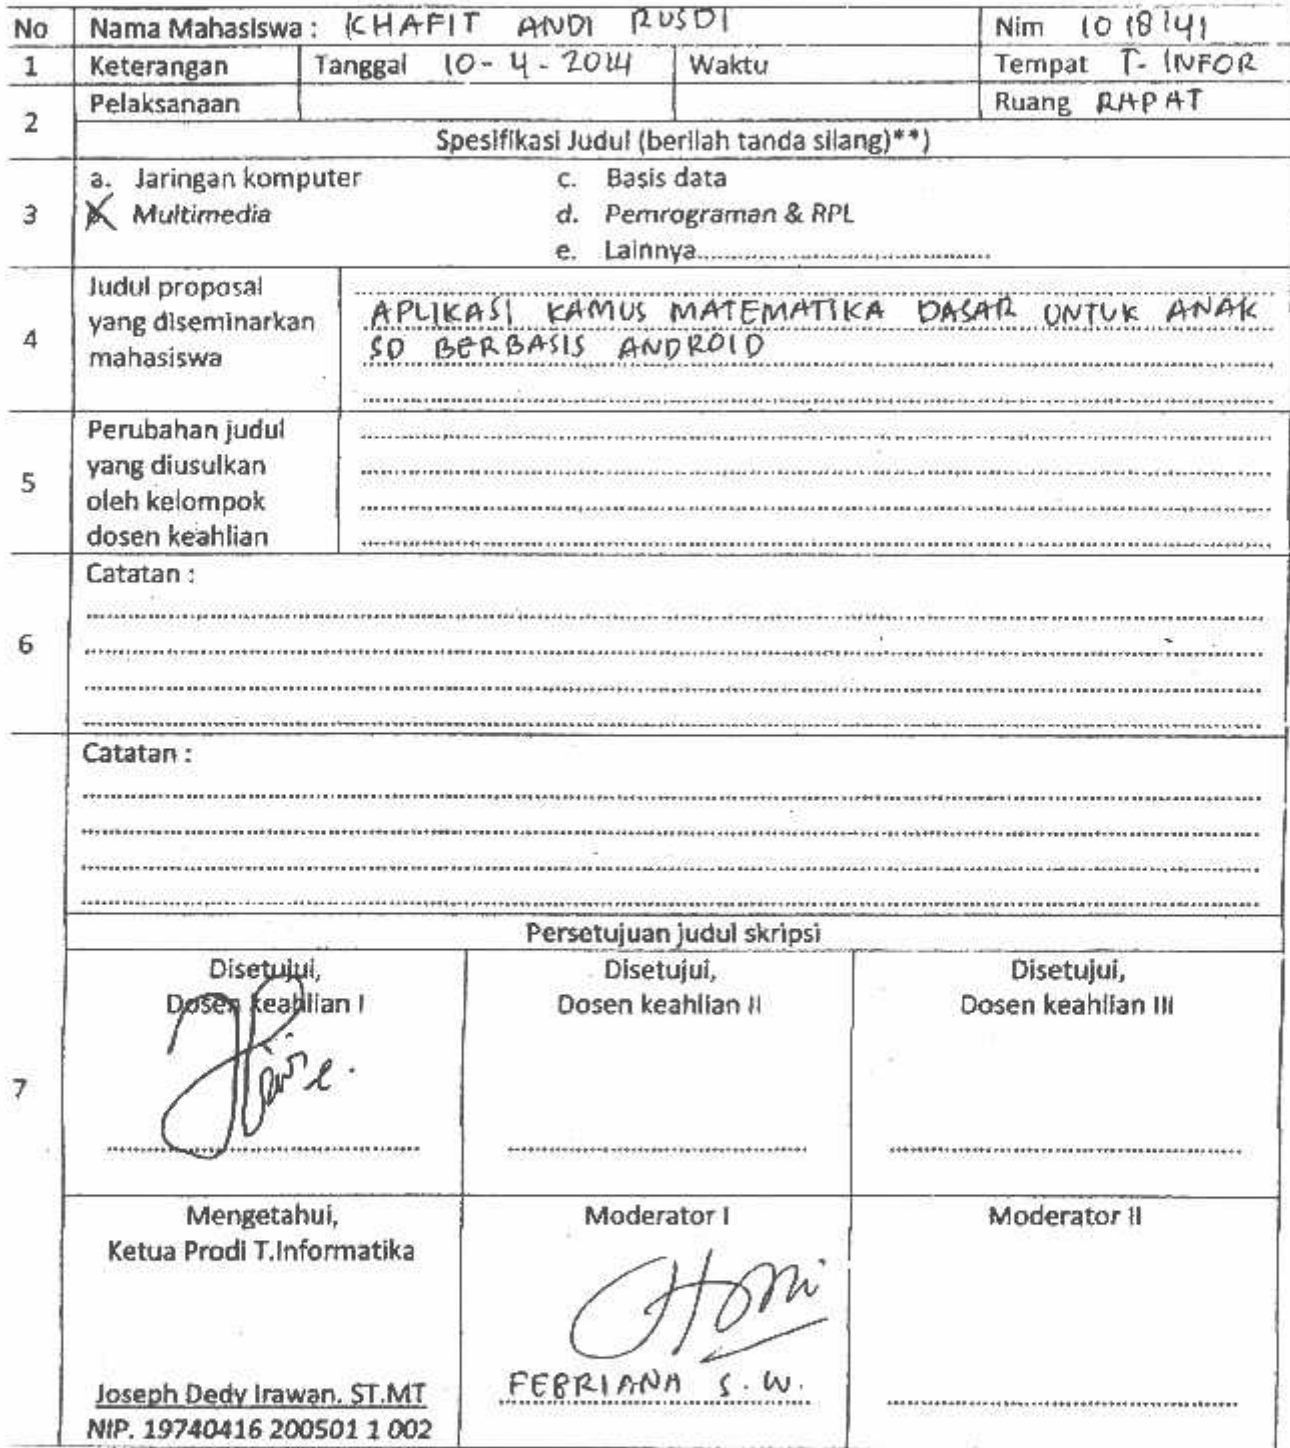 No Nama Mahasiswa : KHAFIT ANDI RUSDI Nim 1018141
1 Keterangan Tanggal 10-4-2014 Waktu Tempat T-INFOR
2 Pelaksanaan Ruang RAPAT
Spesifikasi Judul (berilah tanda silang)**)
3
a. Jaringan komputer c. Basis data
Multimedia d. Pemrograman & RPL
e. Lainnya
4
Judul proposal
yang diseminarkan
mahasiswa
APLIKASI KAMUS MATEMATIKA DASAR UNTUK ANAK
SD BERBASIS ANDROID
5
Perubahan judul
yang diusulkan
oleh kelompok
dosen keahlian
6
Catatan :
Catatan :
Persetujuan judul skripsi
7
Disetujui,
Dosen keahlian I
Disetujui,
Dosen keahlian II
Disetujui,
Dosen keahlian III
Mengetahui,
Ketua Prodi T.Informatika
Joseph Dedy Irawan. ST.MT
NIP. 19740416 200501 1 002
Moderator I
FEBRIANA S.W.
Moderator II